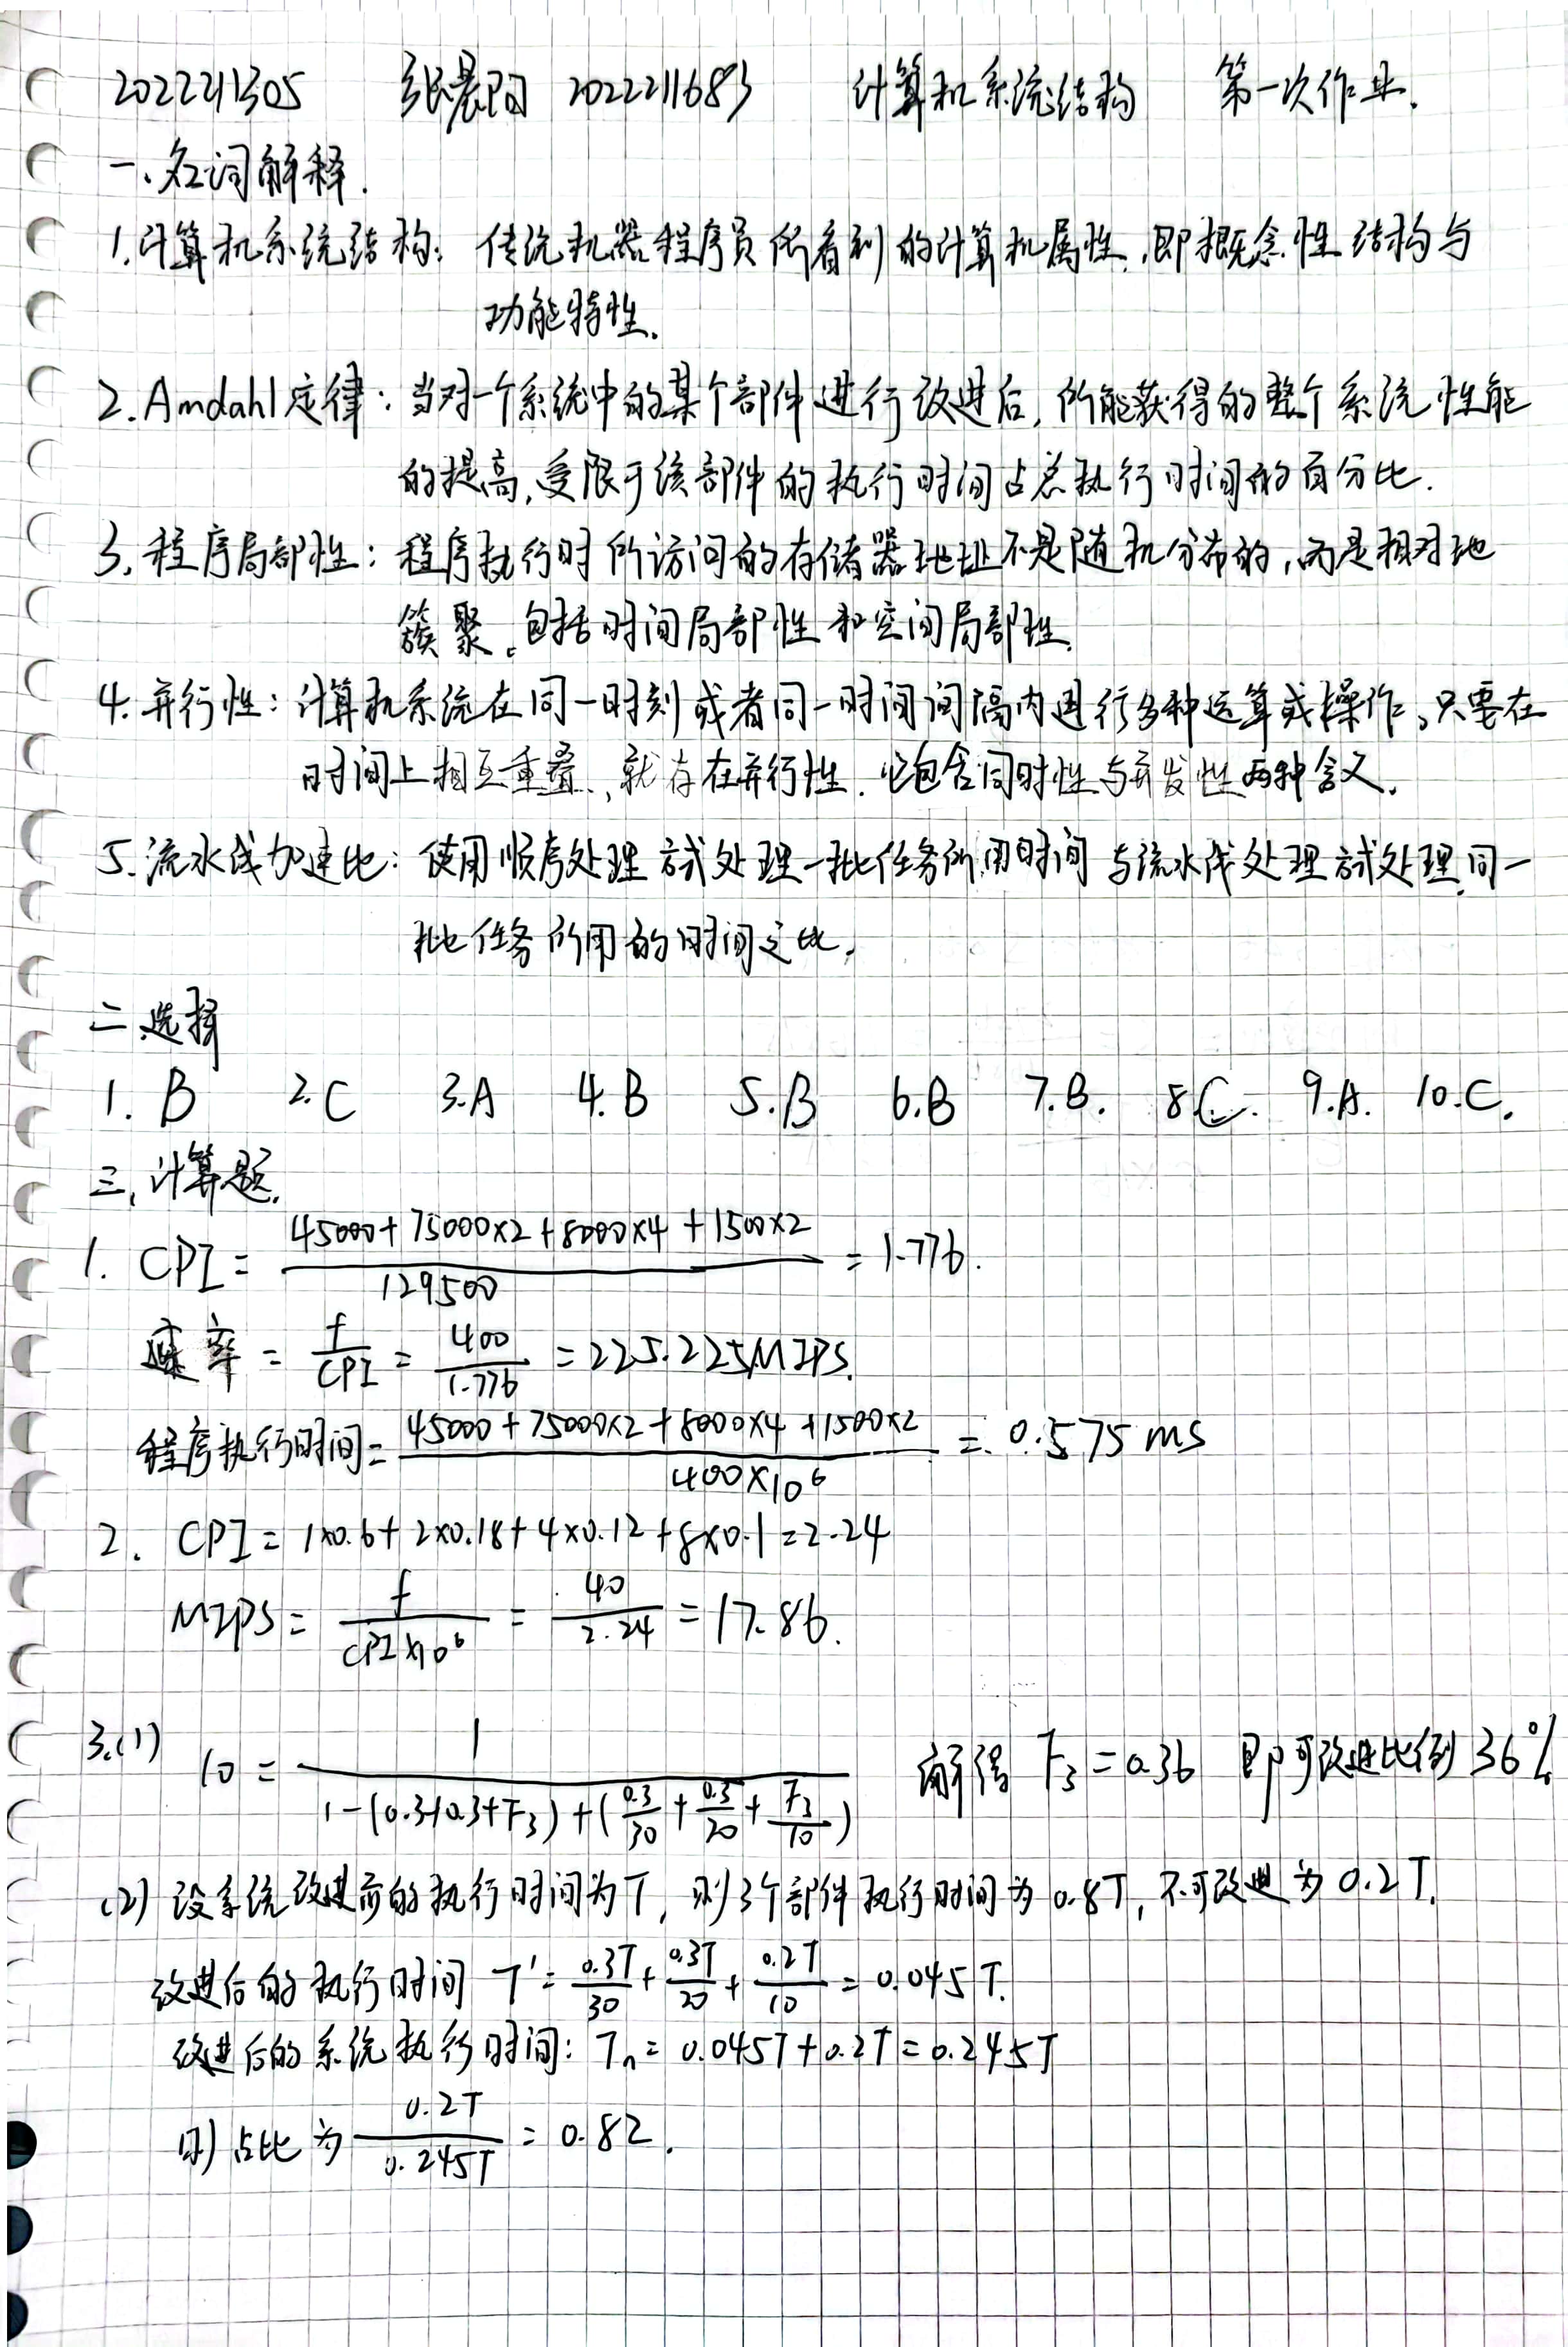 2022211305 张晨阳 2022211683 计算机系统结构 第一次作业.
一、名词解释.
1.计算机系统结构: 传统机器程序员所看到的计算机属性,即概念性结构与
功能特性.
2.Amdahl定律: 当对一个系统中的某个部件进行改进后,所能获得的整个系统性能
的提高,受限于该部件的执行时间占总执行时间的百分比.
3.程序局部性: 程序执行时所访问的存储器地址不是随机分布的,而是相对地
簇聚。包括时间局部性和空间局部性.
4.并行性: 计算机系统在同一时刻或者同一时间间隔内进行多种运算或操作。只要在
时间上相互重叠,就存在并行性.它包含同时性与并发性两种含义.
5.流水线加速比: 使用顺序处理方式处理一批任务所用时间与流水线处理方式处理同一
批任务所用的时间之比.
二.选择
1. B 2.C 3.A 4.B 5.B 6.B 7.B. 8.C. 9.A. 10.C.
三,计算题.
1. CPI = (45000+75000×2+8000×4+1500×2)/129500 = 1.776.
速率 = f/CPI = 400/1.776 = 225.225MIPS.
程序执行时间= (45000+75000×2+8000×4+1500×2)/(400×10⁶) = 0.575 ms
2. CPI = 1×0.6+2×0.18+4×0.12+8×0.1=2.24
MIPS = f/(CPI×10⁶) = 40/2.24 = 17.86.
3.(1) 10 = 1/(1-(0.3+0.3+F₃)+(0.3/30+0.3/20+F₃/10)) 解得 F₃=0.36 即可改进比例36%
(2) 设系统改进前的执行时间为T, 则3个部件执行时间为0.8T, 不可改进为0.2T.
改进后的执行时间 T'= 0.3T/30+0.3T/20+0.2T/10 = 0.045T.
改进后的系统执行时间: Tₙ= 0.045T+0.2T=0.245T
则占比为 0.2T/0.245T = 0.82.